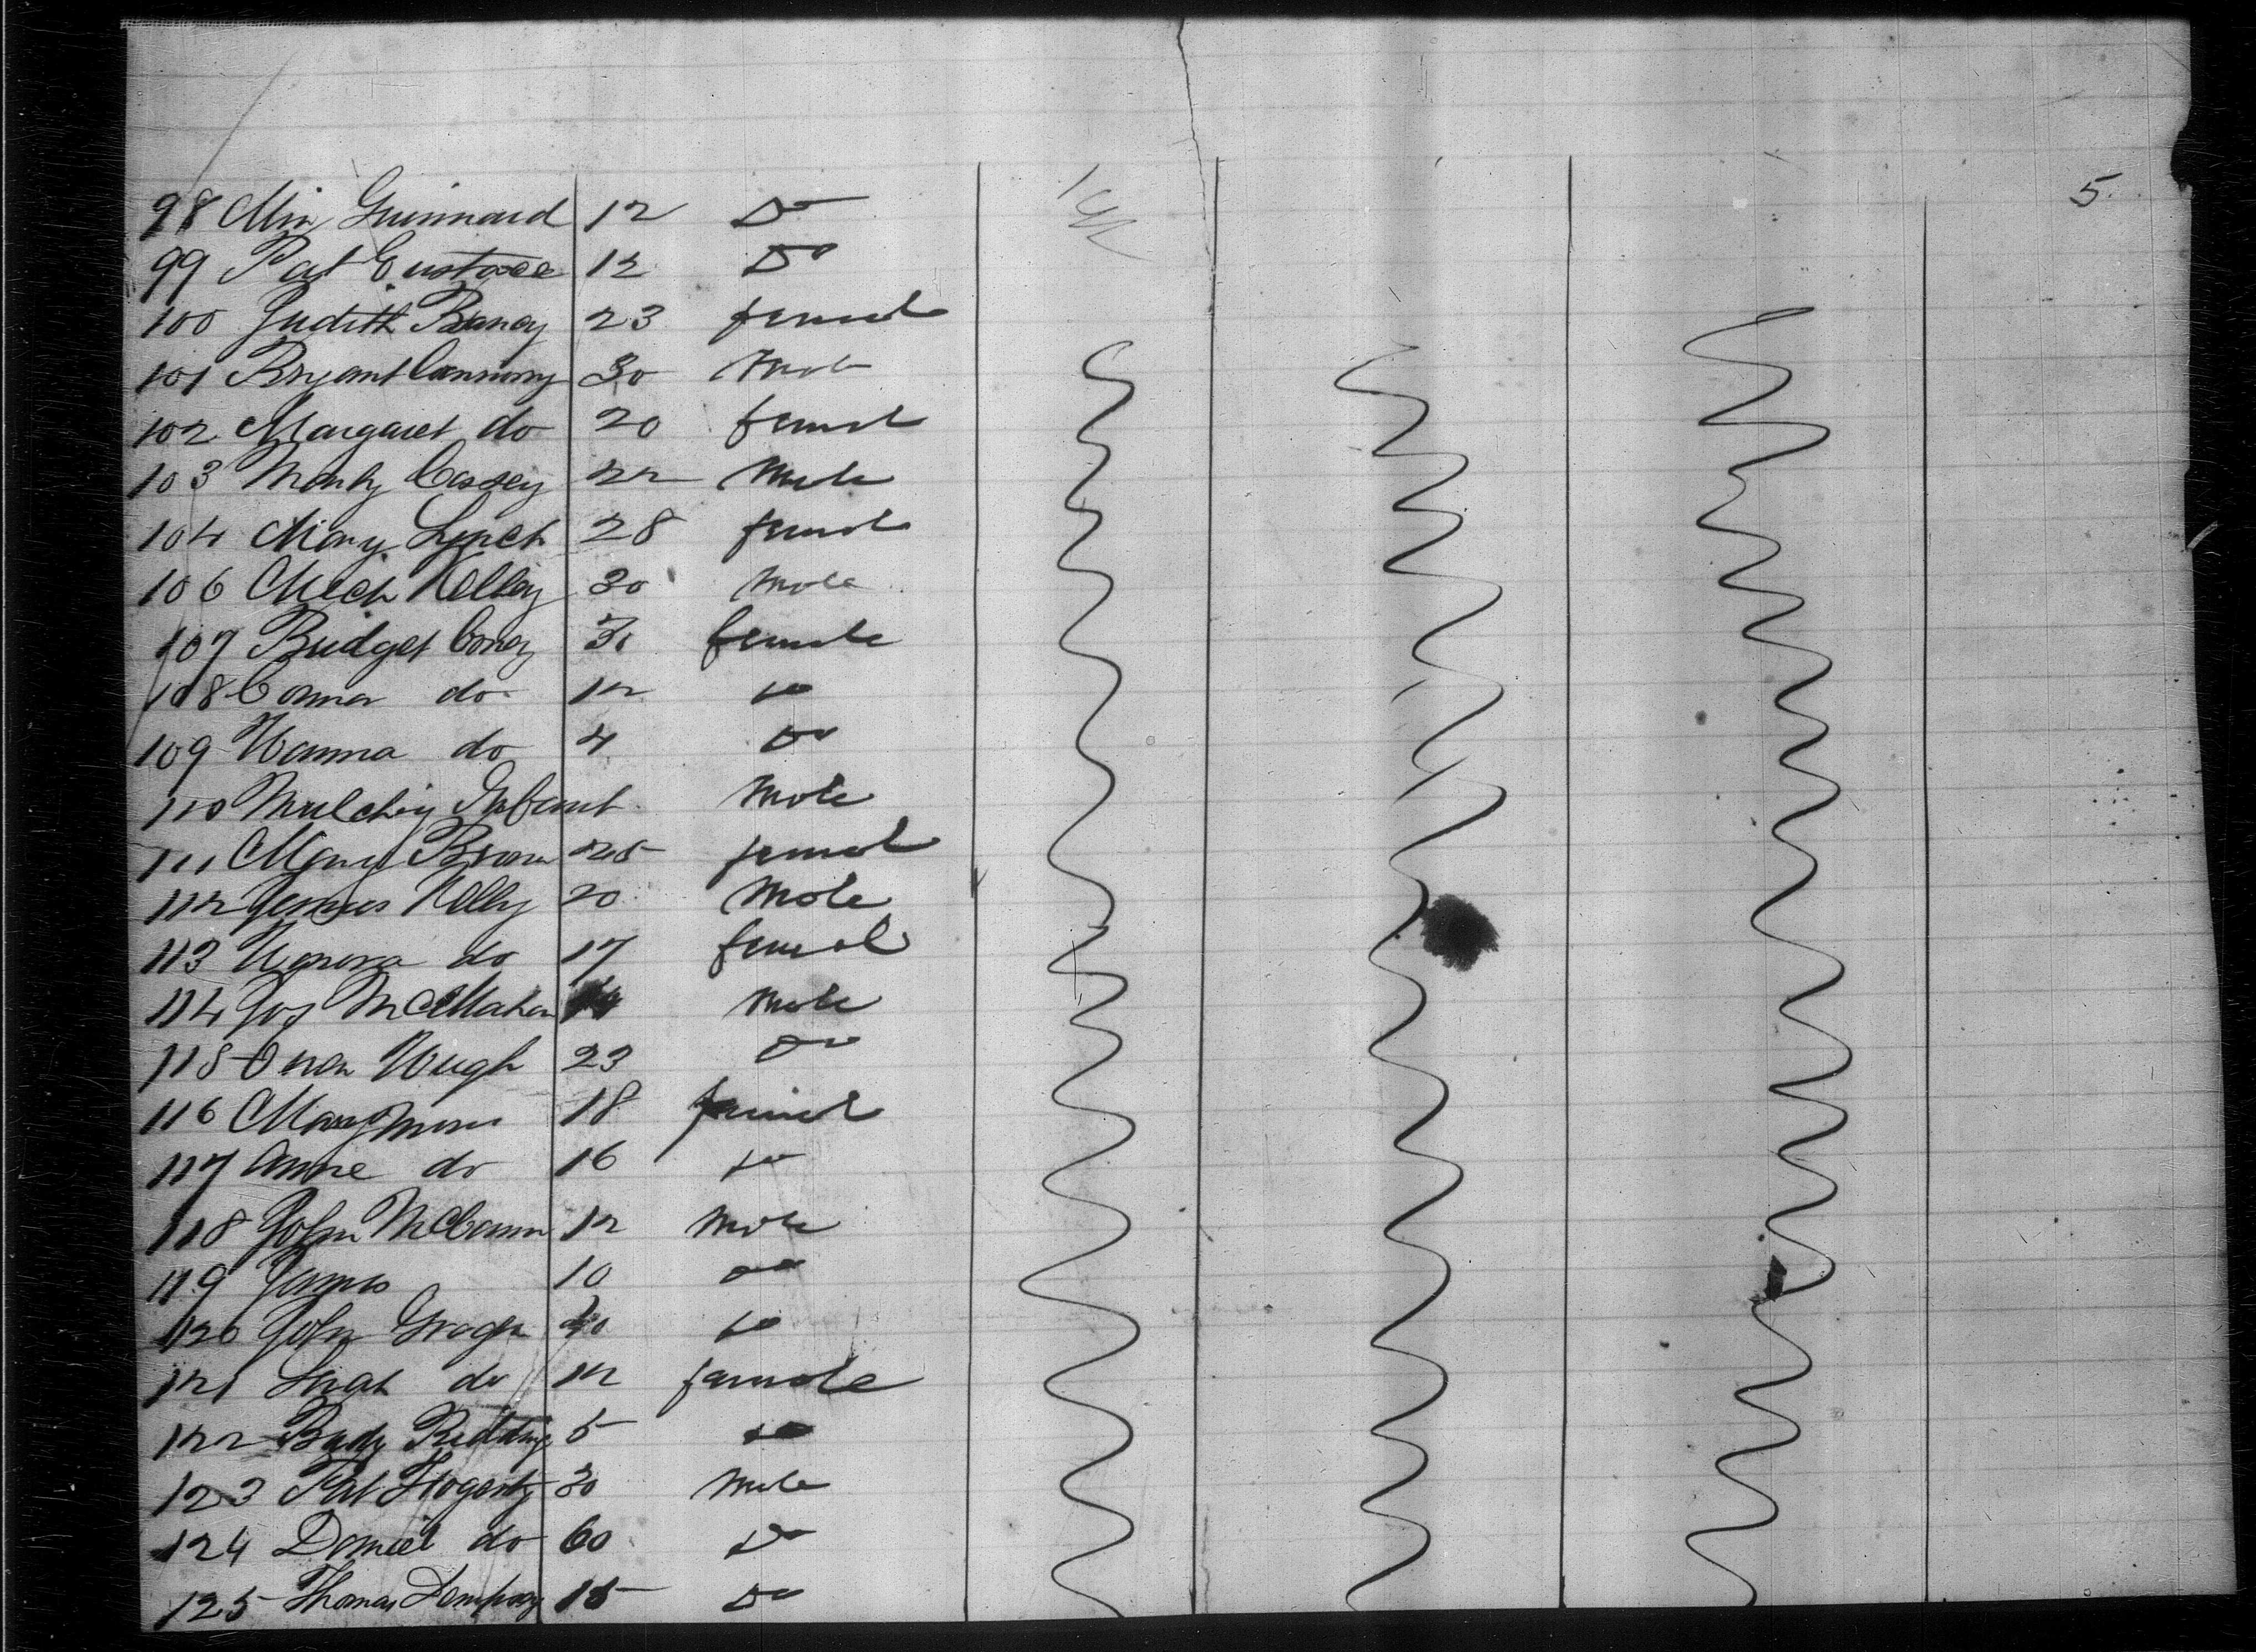 5.
98 Min Guinnard 12 Do
99 Pat Eustace 12 Do
100 Judith 23 femal
101 Bryant 30 Male
102 Margaret do 20 femal
103 Cassey 22 Male
104 Mary Lynch 28 femal
106 Mich Kelley 30 Male
107 Bridget Coney female
108 Conner do 12 do
109 Hanna do 4 Do
110 Mulchiy Infant Male
111 Mary Brown 25 femal
112 James Kelly 20 Male
113 Honora do 17 femal
114 Jos McMahon Male
115 Owen Hugh 23 Do
116 Mary 18 femal
117 Anne do 16 do
118 John McCann 12 Male
119 James 10 do
120 John do
121 do 12 famale
122 Bady Redding 5 do
123 Pat Hogerty 30 Male
124 Daniel do 60 Do
125 Thomas Dempsey 15 Do